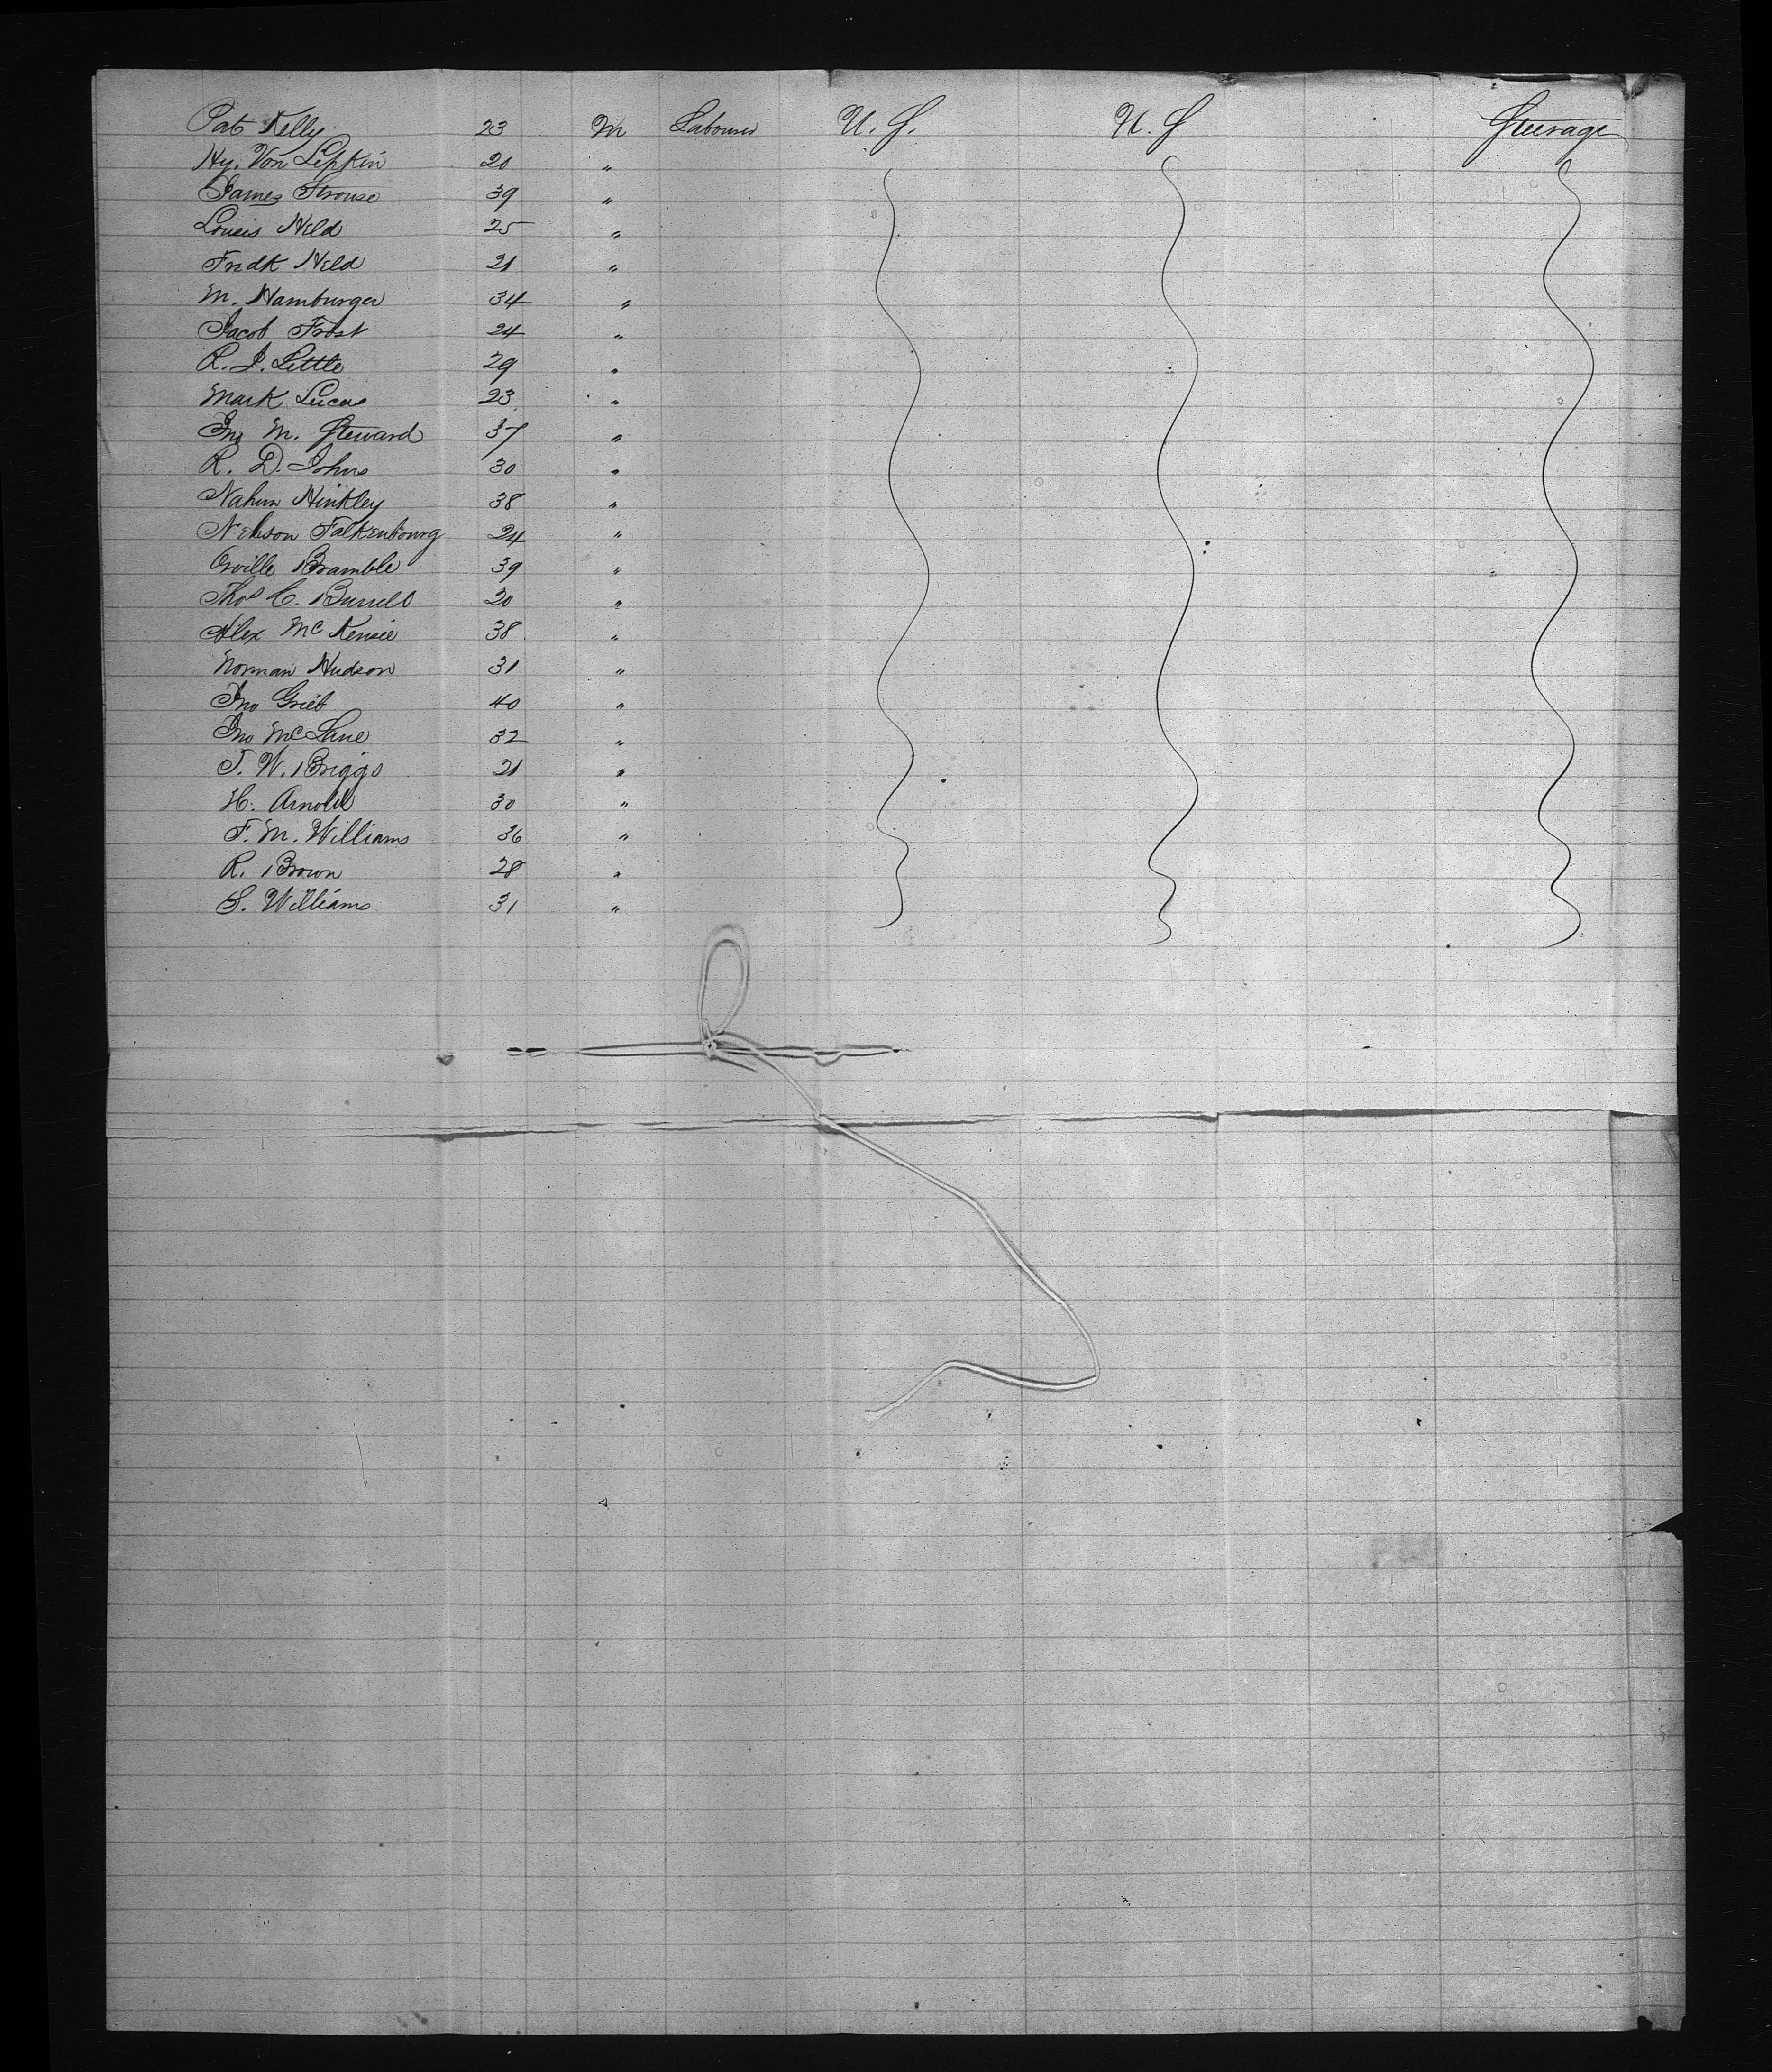 Pat Kelly 23 M Labourer U. S. U. S Steerage
Hy. Von Lipkin 20 "
James Strouse 39 "
Louis Held 25 "
Fredk Held 21 "
M. Hamburger 34 "
Jacob Frost 24 "
R. J. Little 29 "
Mark Lucas 23 "
Jno M. Steward 37 "
R. D. Johns 30 "
Nahum Hinkley 38 "
Nelson Falkenbourg 24 "
Orville Bramble 39 "
Thos C. Burrell 20 "
Alex McKensie 38 "
Norman Hudson 31 "
Jno Grieb 40 "
Jno McLane 32 "
T. W. Briggs 21 "
H. Arnold 30 "
F. M. Williams 36 "
R. Brown 28 "
S. Williams 31 "